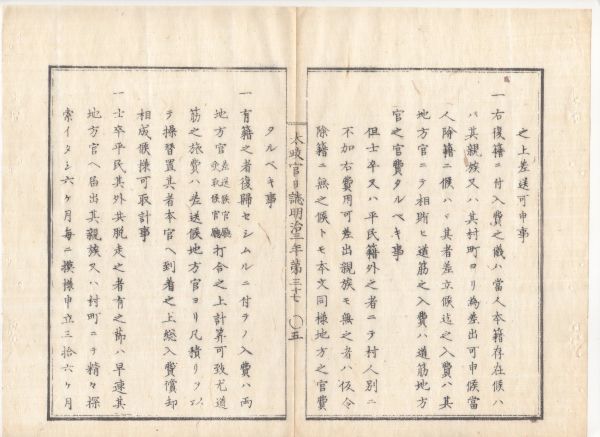 之上差送可申事
一右復籍ニ付入費之儀ハ當人本籍存在候ハ
バ其親族又ハ其村町ヨリ為差出可申候當
人除籍ニ候ハヾ其者差立候迄之入費ハ其
地方官ニテ相賄ヒ道筋之入費ハ道筋地方
官之官費タルベキ事
但士卒又ハ平民籍外之者ニテ村人別ニ
不加右費用可差出親族モ無之者ハ仮令
除籍ニ無之候トモ本文同様地方之官費
太政官日誌明治三年第三十七 〇五
タルベキ事
一有籍之者復歸セシムルニ付テノ入費ハ両
地方官差送候官廳受取候官廳打合之上計算可致尤道
筋之旅費ハ差送候地方官ヨリ凡積リヲ以
テ操替置其者本官ヘ到着之上総入費償却
相成候様可取計事
一士卒平民其外共脱走之者有之節ハ早速其
地方官ヘ届出其親族又ハ村町ニテ精々探
索イタシ六ヶ月毎ニ模様申立三拾六ヶ月